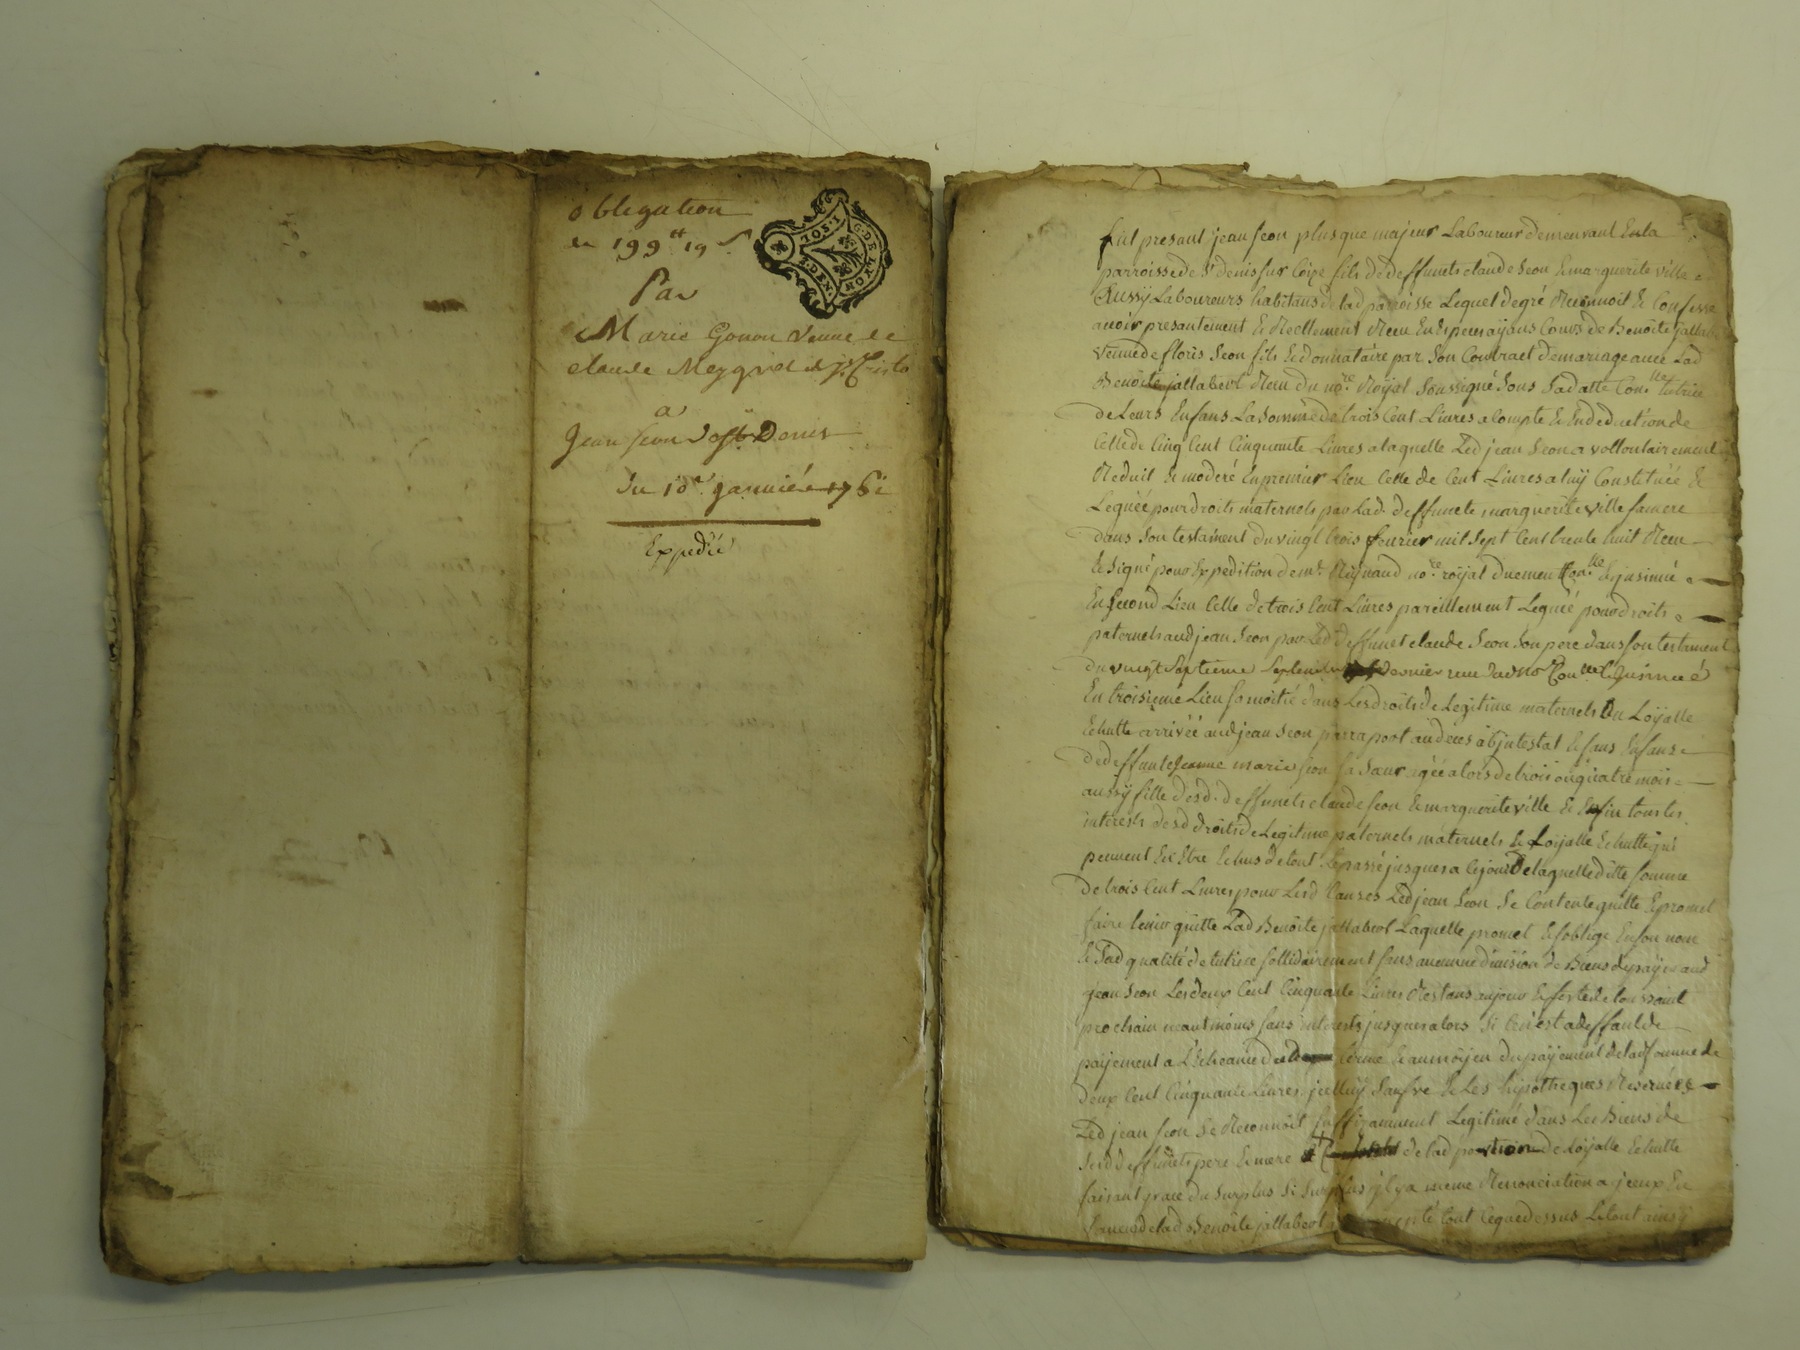 obligation
de 199tt 19 s
Par
Marie Gonon veuve de
claude Meygret de st Cristo
a
Jean seon de st Denis
Du 10e janvier 1761
Expediée
G. DE LYON
DEN.
fut presant jean seon plus que majeur Laboureur demeurant En la
parroisse de st denis sur Coize fils de deffunets claude seon & marguerite ville
Aussy Laboureurs habitans de lad parroisse Lequel de gré Reconnoit & Confesse
avoir presantement & Reellement Receu En Especes ayans Cours de Benoite jallabert
veuve de floris seon fils & donnataire par son Contract de mariage avec Lad
Benoite jallabert Receu du nore Royal soussigné sous sa datte Conlle tutrice
de Leurs Enfans La somme de trois Cent Livres a Compte & En deduction de
Celle de Cinq Cent Cinquante Livres a laquelle Led jean seon a vollontairement
Reduit & moderé En premier Lieu Celle de Cent Livres a luy Constituée &
Leguée pour droits maternels par Lad. deffuncte marguerite ville sa mere
dans son testament du vingt trois fevrier mil sept Cent trente huit Receu
& signé pour Expedition de me Reynaud nore royal duement Conlle & jnsinué
En second Lieu Celle de trois Cent Livres pareillement Leguée pour droits
paternels aud jean seon par Led deffunct claude seon son pere dans son testament
du vingt septieme septembre dernier receu dud nore Conlle & jnsinué
En troisieme Lieu sa moitié dans Les droits de Legitime maternels Ou Loyalle
Echutte arrivée aud jean seon par raport au deces abjntestat & sans Enfans
de deffunte jeanne marie seon sa sœur agée alors de trois ou quatre mois
aussy fille desd. deffunets claude seon & marguerite ville & Enfin tous les
interests desd droits de Legitime paternels maternels & Loyalle Echutte qui
peuvent En Etre Echus de tout Le passé jusques a Ce jour De laquelle ditte somme
de trois Cent Livres pour Lesd Causes Led jean seon se Contente quitte & promet
faire tenir quitte Lad Benoite jallabert Laquelle promet & s'oblige En son nom
& Lad qualité de tutrice sollidairement sans aucunne division de Biens de payer aud
jean seon Les deux Cent Cinquante Livres Restans au jour & feste de toussaint
prochain neantmoins sans interests jusques alors si Ce n'est a deffault de
payement a L'Echeance dud terme & au moyen du payement de lad somme de
deux Cent Cinquante Livres jcelluy sauf & Les hipotheques Reservées
Led jean seon se Reconnoit suffizamment Legitimé dans Les Biens de
sesd deffunets pere & mere & de lad portion de Loyalle Echutte
faisant grace du surplus si surplus jl y a meme Renonciation a jceux En
faveur de lad Benoite jallabert tout Ce que dessus Le tout ainsy